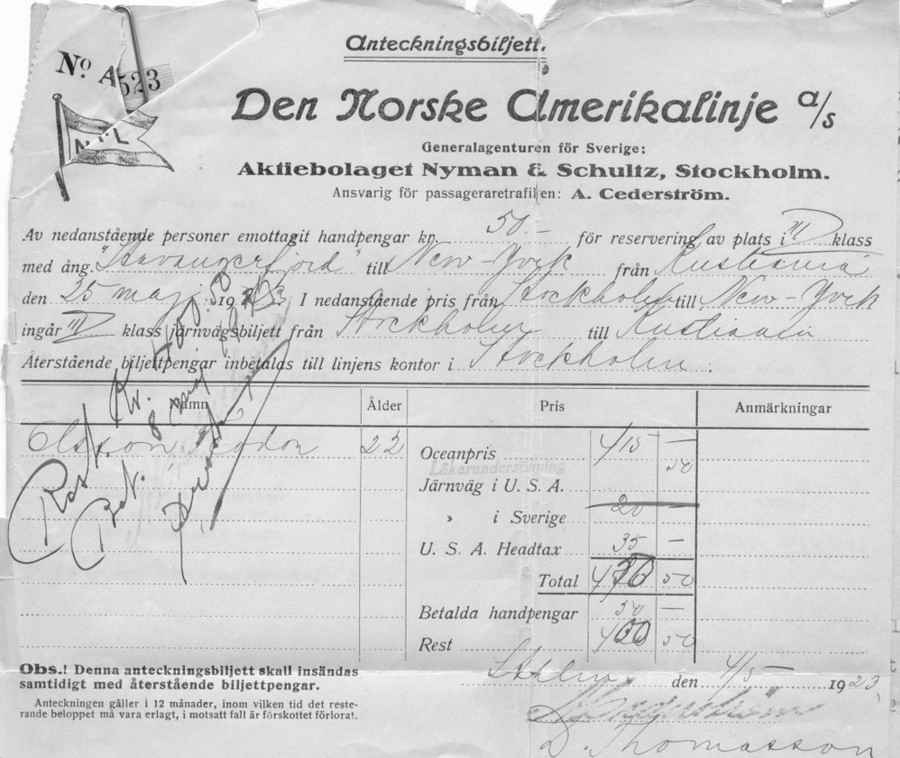 Anteckningsbiljett.
No. A 523
N A L
Den Norske Amerikalinje A/S
Generalagenturen för Sverige:
Aktiebolaget Nyman & Schultz, Stockholm.
Ansvarig för passageraretrafiken: A. Cederström.
Av nedanstående personer emottagit handpengar kr. 50.- för reservering av plats i III klass
med ång. "Stavangerfjord" till New-York från Kristiania
den 25 maj 1923. I nedanstående pris från Stockholm till New-York
ingår III klass järnvägsbiljett från Stockholm till Kristiania
Återstående biljettpengar inbetalas till linjens kontor i Stockholm.
Namn Ålder Pris Anmärkningar
Olsson 22
Rest Kr. 400.50
Bet. 8 maj 1923
Oceanpris 415 —
Läkarundersökning 50
Järnväg i U. S. A.
„ i Sverige 20 —
U. S. A. Headtax 35 —
Total 450 50
Betalda handpengar 50 —
Rest 400 50
Obs.! Denna anteckningsbiljett skall insändas
samtidigt med återstående biljettpengar.
Anteckningen gäller i 12 månader, inom vilken tid det reste-
rande beloppet må vara erlagt, i motsatt fall är förskottet förlorat.
Sthlm den 4/5 1923.
D. Thomasson